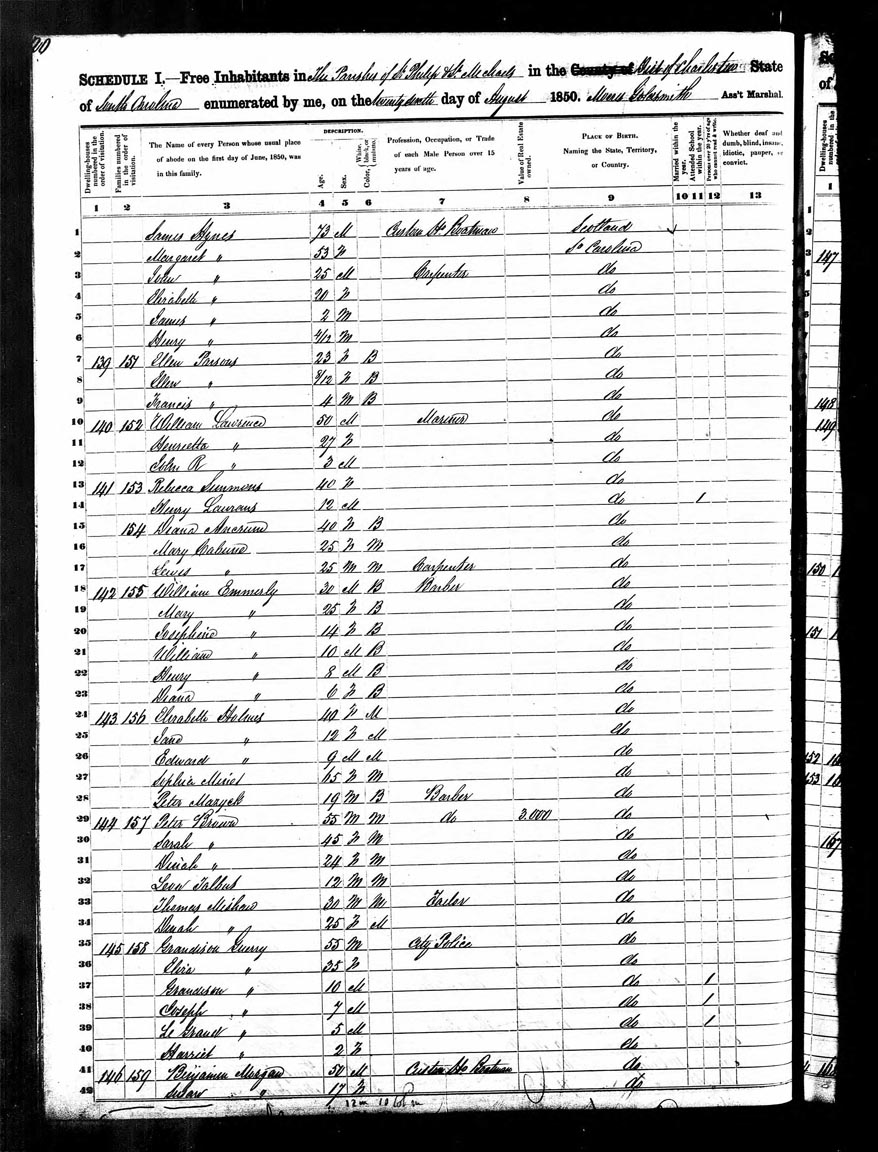 SCHEDULE I.—Free Inhabitants in The Parishes of St Philip & St Michaels in the County of Dist of Charleston State
of South Carolina enumerated by me, on the day of August 1850. Goldsmith Ass't Marshal.
DESCRIPTION.
Dwelling-houses numbered in the order of visitation. Families numbered in the order of visitation. The Name of every Person whose usual place of abode on the first day of June, 1850, was in this family. Age. Sex. Color, White, black, or mulatto. Profession, Occupation, or Trade of each Male Person over 15 years of age. Value of Real Estate owned. PLACE OF BIRTH. Naming the State, Territory, or Country. Married within the year. Attended School within the year. Persons over 20 y'rs of age who cannot read & write. Whether deaf and dumb, blind, insane, idiotic, pauper, or convict.
1 2 3 4 5 6 7 8 9 10 11 12 13
1 James Hynes 73 M Custom Ho Boatman Scotland
2 Margaret " 53 F So Carolina
3 John " 25 M Carpenter do
4 Elizabeth " 20 F do
5 James " 2 M do
6 Henry " 4/12 M do
7 139 151 Ellen Parsons 23 F B do
8 Ellen " 8/12 F B do
9 Francis " 4 M B do
10 140 152 William Lawrence 50 M Mariner do
11 Henrietta " 27 F do
12 John R " 3 M do
13 141 153 Rebecca Simmons 40 F do
14 Henry Laurans 12 M do 1
15 154 Diana Ancrum 40 F B do
16 Mary 25 F M do
17 Lewis " 25 M M Carpenter do
18 142 155 William Emmerly 30 M B Barber do
19 Mary " 25 F B do
20 Josephine " 14 F B do
21 William " 10 M B do
22 Henry " 8 M B do
23 Diana " 6 F B do
24 143 156 Elizabeth Holmes 40 F M do
25 Jane " 12 F M do
26 Edward " 9 M M do
27 Sophia 65 F M do
28 Peter Mazyck 19 M B Barber do
29 144 157 Peter Brown 55 M M do 3.000 do
30 Sarah " 45 F M do
31 Dinah " 24 F M do
32 Talbut 12 M M do
33 Thomas Mishaw 30 M M do
34 Dinah " 25 F M do
35 145 158 Grandison Guerry 55 M City Police do
36 Eliza " 35 F do
37 Grandison " 10 M do 1
38 Joseph " 7 M do 1
39 Le Grand " 5 M do 1
40 Harriet " 2 F do
41 146 159 Benjamin Morgan 50 M Custom Ho Boatman do
42 Susan " 17 F do
1
1
2
3 147
4
5
148
149
150
151
152
153